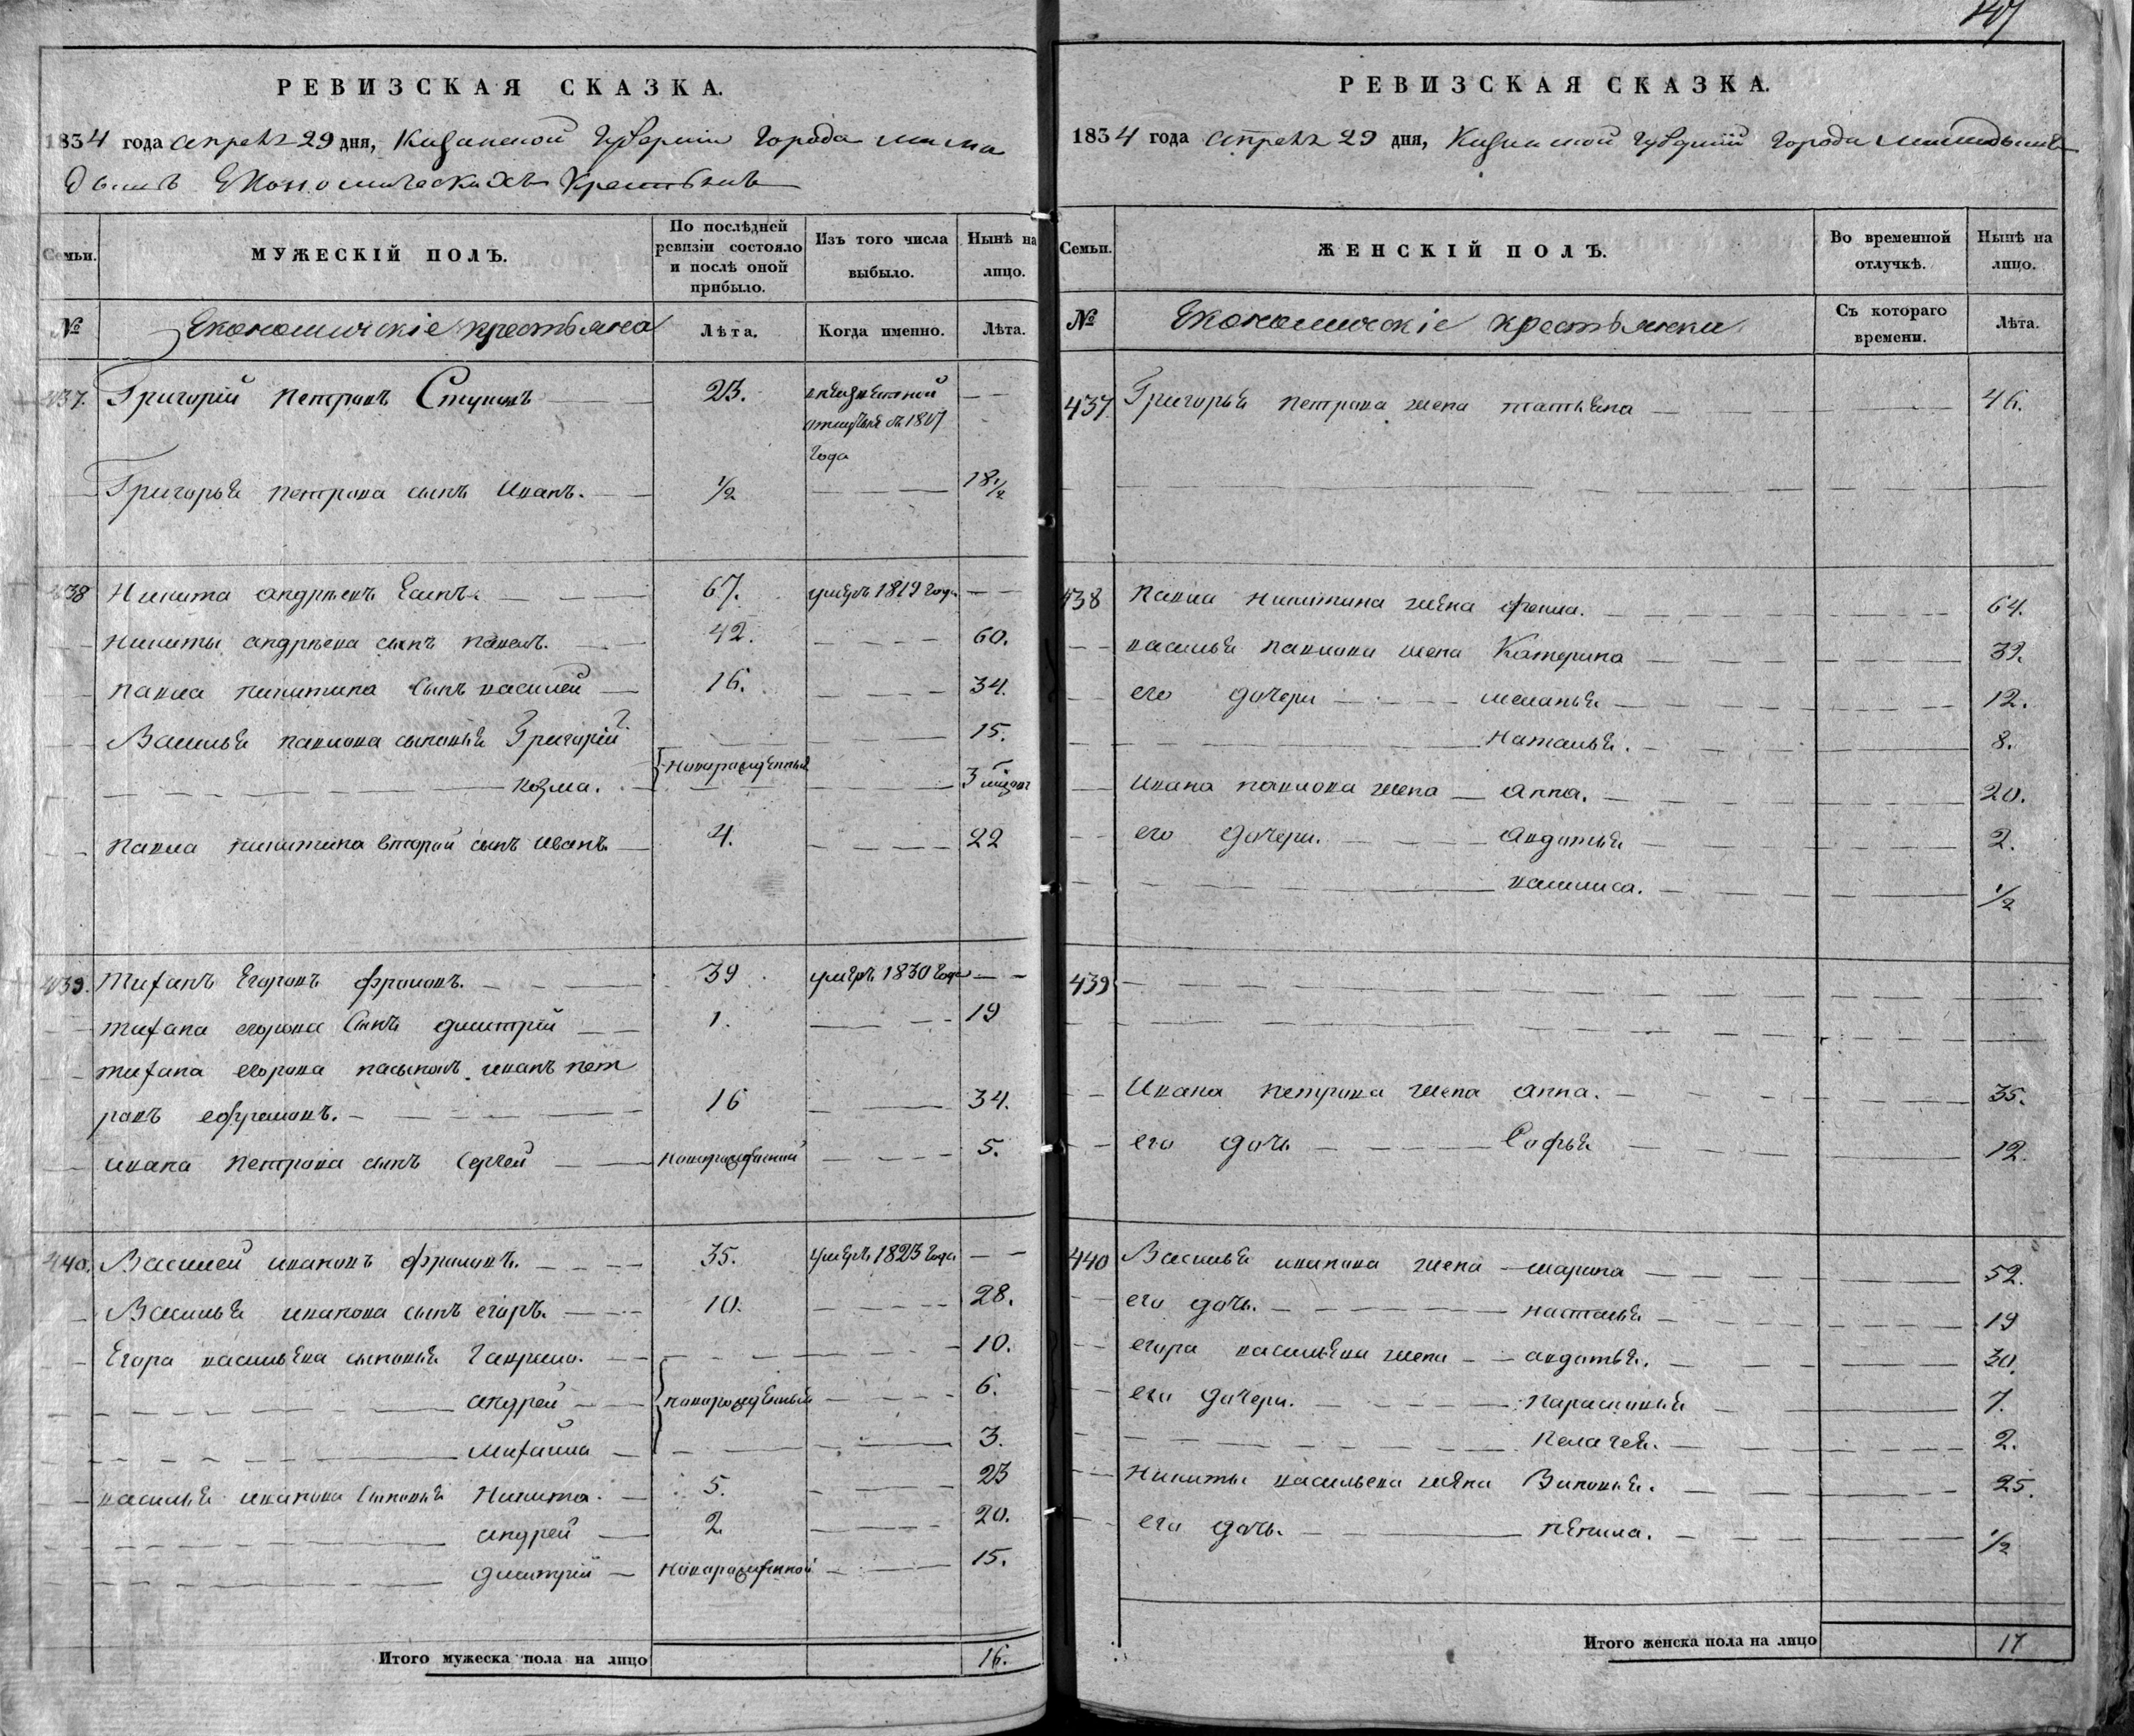 147
РЕВИЗСКАЯ СКАЗКА.
1834 года апреля 29 дня, Казанской Губернии Города мама
дышъ Економическихъ Крестьянъ
Семьи.
МУЖЕСКІЙ ПОЛЪ.
По послѣдней
ревизіи состояло
и послѣ оной
прибыло.
Изъ того числа
выбыло.
Нынѣ на
лицо.
№
Економическіе крестьяна
Лѣта.
Когда именно.
Лѣта.
437. Григорій петровъ 23. — —
отлучке съ 1817
года
Григорья петрова сынъ иванъ. ½ — — — 18 ½
438 Никита андрѣевъ Еминъ. — — 67. умеръ 1819 года — —
никиты андрѣева сынъ павелъ. — 42. — — — 60.
павла никитина сынъ василей — 16. — — — 34.
Василья павлова сыновья Григорій — — — 15.
новорожденныя
— — — козма. — — — 3 мѣсяцъ
павла никитина второй сынъ иванъ — 4. — — — 22
439. тиханъ Егоровъ фроловъ. — — — 39 умеръ 1830 года — —
тихана егорова сынъ дмитрій — — 1. — — — 19
тихана егорова пасынокъ иванъ пет
ровъ ефремовъ. — — — 16 — — 34.
ивана петрова сынъ сергей — — новорожденный — — — 5.
440. Василей ивановъ фроловъ. — — — 35. умеръ 1823 года — —
Василья иванова сынъ егоръ. — — 10. — — — 28.
Егора васильева сыновья гаврила. — — — — 10.
— — — андрей — — новорожденныя — — — 6.
— — — михаила — — — — 3.
василья иванова сыновья Никита. — 5. — — 23
— — — андрей — 2. — — 20.
— — — дмитрій — новорожденной — — 15.
Итого мужеска пола на лицо 16.
РЕВИЗСКАЯ СКАЗКА.
1834 года апреля 29 дня, Казанской губерній города мамадышъ
Семьи.
ЖЕНСКІЙ ПОЛЪ.
Во временной
отлучкѣ.
Нынѣ на
лицо.
№
Економическіе крестьянки
Съ котораго
времени.
Лѣта.
437. Григорья петрова жена татьяна — — — 46.
438 павла никитина жена — — — 64.
василья павлова жена Катерина — — — 39.
его дочери — — — меланья — — — 12.
— — — наталья. — — — 8.
ивана павлова жена — анна. — — — 20.
его дочери. — — — авдотья — — — 2.
— — — — — — ½
439 — — —
Ивана петрова жена анна. — — — 35.
его дочь — — — Софья — — — 12.
440 Василья иванова жена — марина — — — 52.
его дочь. — — — наталья — — — 19
егора васильева жена — — авдотья. — — — 30.
его дочери. — — — парасковья — — — 7.
— — — пелагея. — — — 2.
Никиты васильева жена — — — 25.
его дочь. — — — — — — ½
Итого женска пола на лицо 17